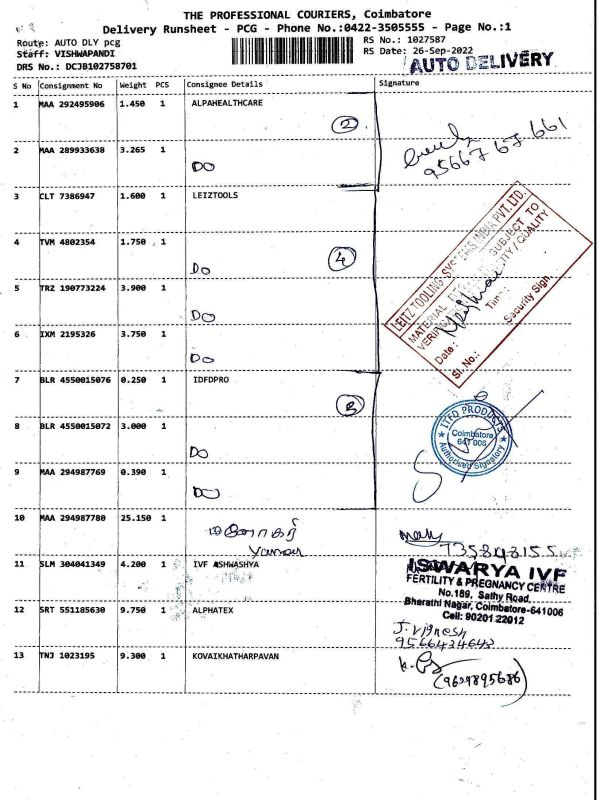 THE PROFESSIONAL COURIERS, Coimbatore
Delivery Runsheet - PCG - Phone No.:0422-3505555 - Page No.:1
Route: AUTO DLY pcg
RS No.: 1027587
Staff: VISHWAPANDI
RS Date: 26-Sep-2022
DRS No.: DCJB102758701
AUTO DELIVERY
S No Consignment No Weight PCS Consignee Details Signature
1 MAA 292495906 1.450 1 ALPAHEALTHCARE
2
95667 67 661
2 MAA 289933638 3.265 1
DO
3 CLT 7386947 1.600 1 LEIZTOOLS
4 TVM 4802354 1.750 1
DO
4
5 TRZ 190773224 3.900 1
DO
6 IXM 2195326 3.750 1
DO
LEITZ TOOLING SYSTEMS INDIA PVT. LTD.
MATERIAL SUBJECT TO
QUALITY
Date :
Time
Sl. No.:
Security Sign.
7 BLR 4550015076 0.250 1 IDFDPRO
3
8 BLR 4550015072 3.000 1
DO
ITFD PRODUCTS
Coimbatore
641 006
Authorised Signatory
9 MAA 294987769 0.390 1
DO
10 MAA 294987780 25.150 1
11 SLM 304041349 4.200 1 IVF ASHWASHYA
ISWARYA IVF
FERTILITY & PREGNANCY CENTRE
No.189, Sathy Road,
Bharathi Nagar, Coimbatore-641006
Cell: 90201 22012
12 SRT 551185630 9.750 1 ALPHATEX
J. Vignesh
9566434643
13 TNJ 1023195 9.300 1 KOVAIKHATHARPAVAN
(9629895686)